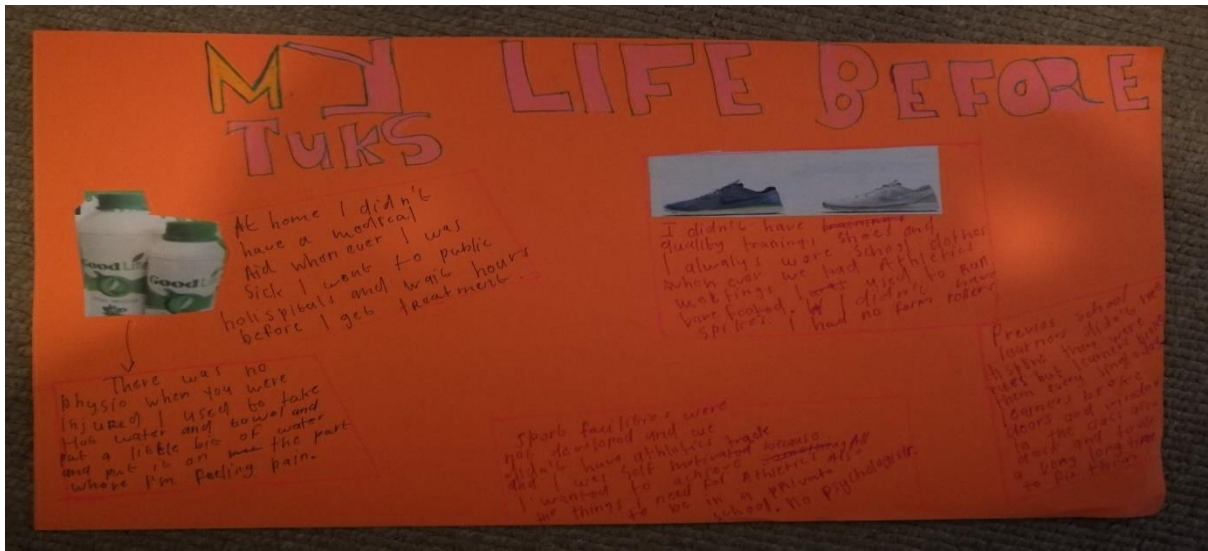 MY LIFE BEFORE
TUKS
Good Life
Good Life
At home I didn't
have a medical
Aid when ever I was
Sick I went to public
holispitals and wait hours
before I get treatment.
There was no
physio when you were
injured I used to take
Hot water and towel and
put a little bit of water
and put it on the part
where I'm feeling pain.
I didn't have
quality tranings shoes and
I always wore School clothes
when ever we had Athletics
meetings I used to Run
bare footed. I didn't have
spikes. I had no form rollers
sport facilities were
not developed and we
didn't have athletics
and I was self motivated because
I wanted to achieve All
the things I need for Athletics
to be in a private
school. No psychologist.
Previos school
learners didn't
there were
rules but learners
them every single
learners broke
doors and window
in the class
and took
a very long time
to fix things